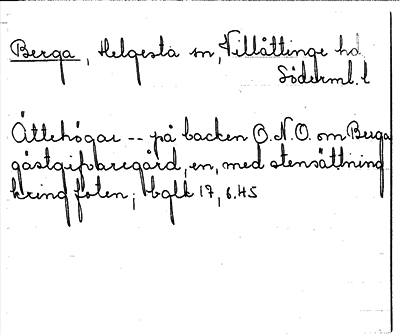 Berga, Helgesta sn, Villåttinge hd
Söderml. l
Ättehögar -- på backen O.N.O. om Berga
gästgifvaregård, en, med stensättning
kring foten; bglk 17, s. 45